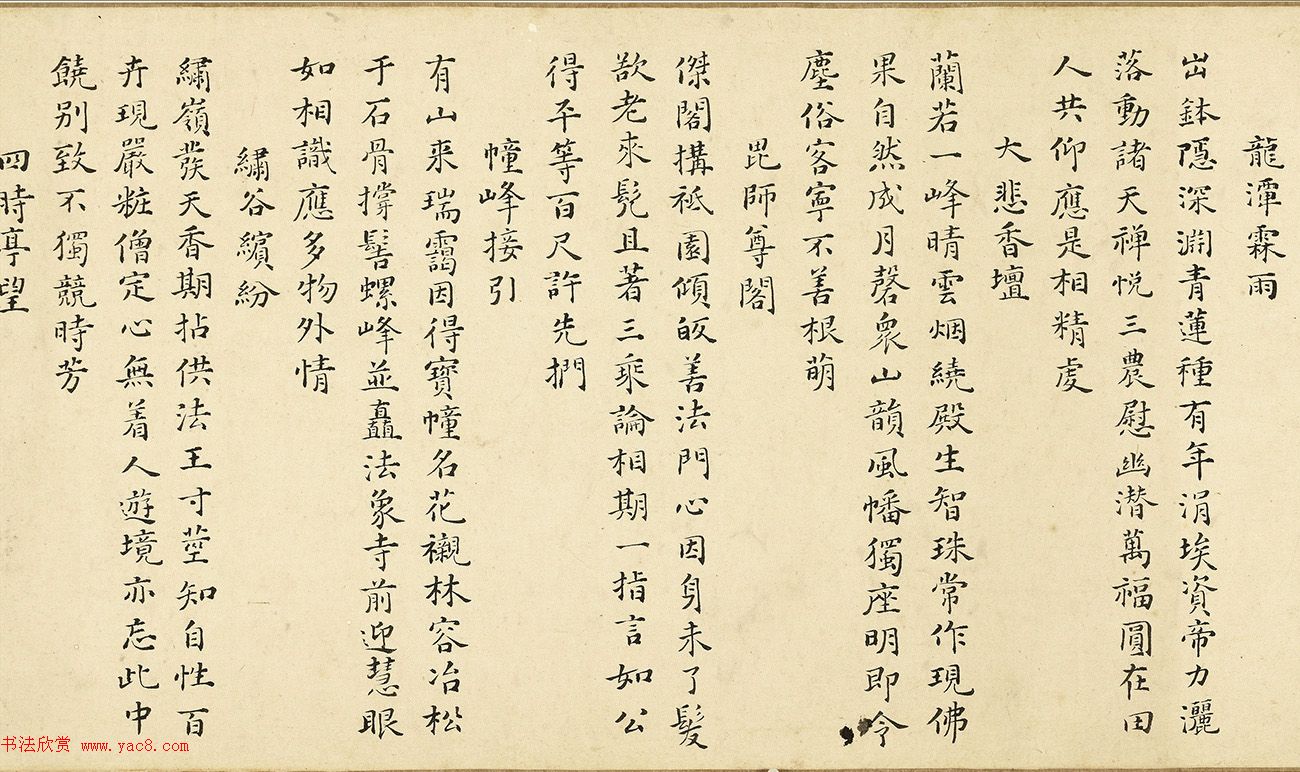 龍潭霖雨
出鉢隱深淵青蓮種有年涓埃資帝力灑
落動諸天禅悦三農慰幽潜萬福圓在田
人共仰應是相精虔
大悲香壇
蘭若一峰晴雲烟繞殿生智珠常作現佛
果自然成月磬衆山韻風幡獨座明即今
塵俗客寧不善根萌
毘師尊閣
傑閣搆祗園傾皈善法門心因身未了髮
欲老來髡且著三乘論相期一指言如公
得平等百尺許先捫
幢峰接引
有山来瑞靄因得寶幢名花襯林容冶松
于石骨撐髻螺峰並矗法象寺前迎慧眼
如相識應多物外情
繡谷繽紛
繡嶺發天香期拈供法王寸莖知自性百
卉現嚴粧僧定心無着人遊境亦忘此中
饒别致不獨競時芳
四時亭望
书法欣赏 www.yac8.com